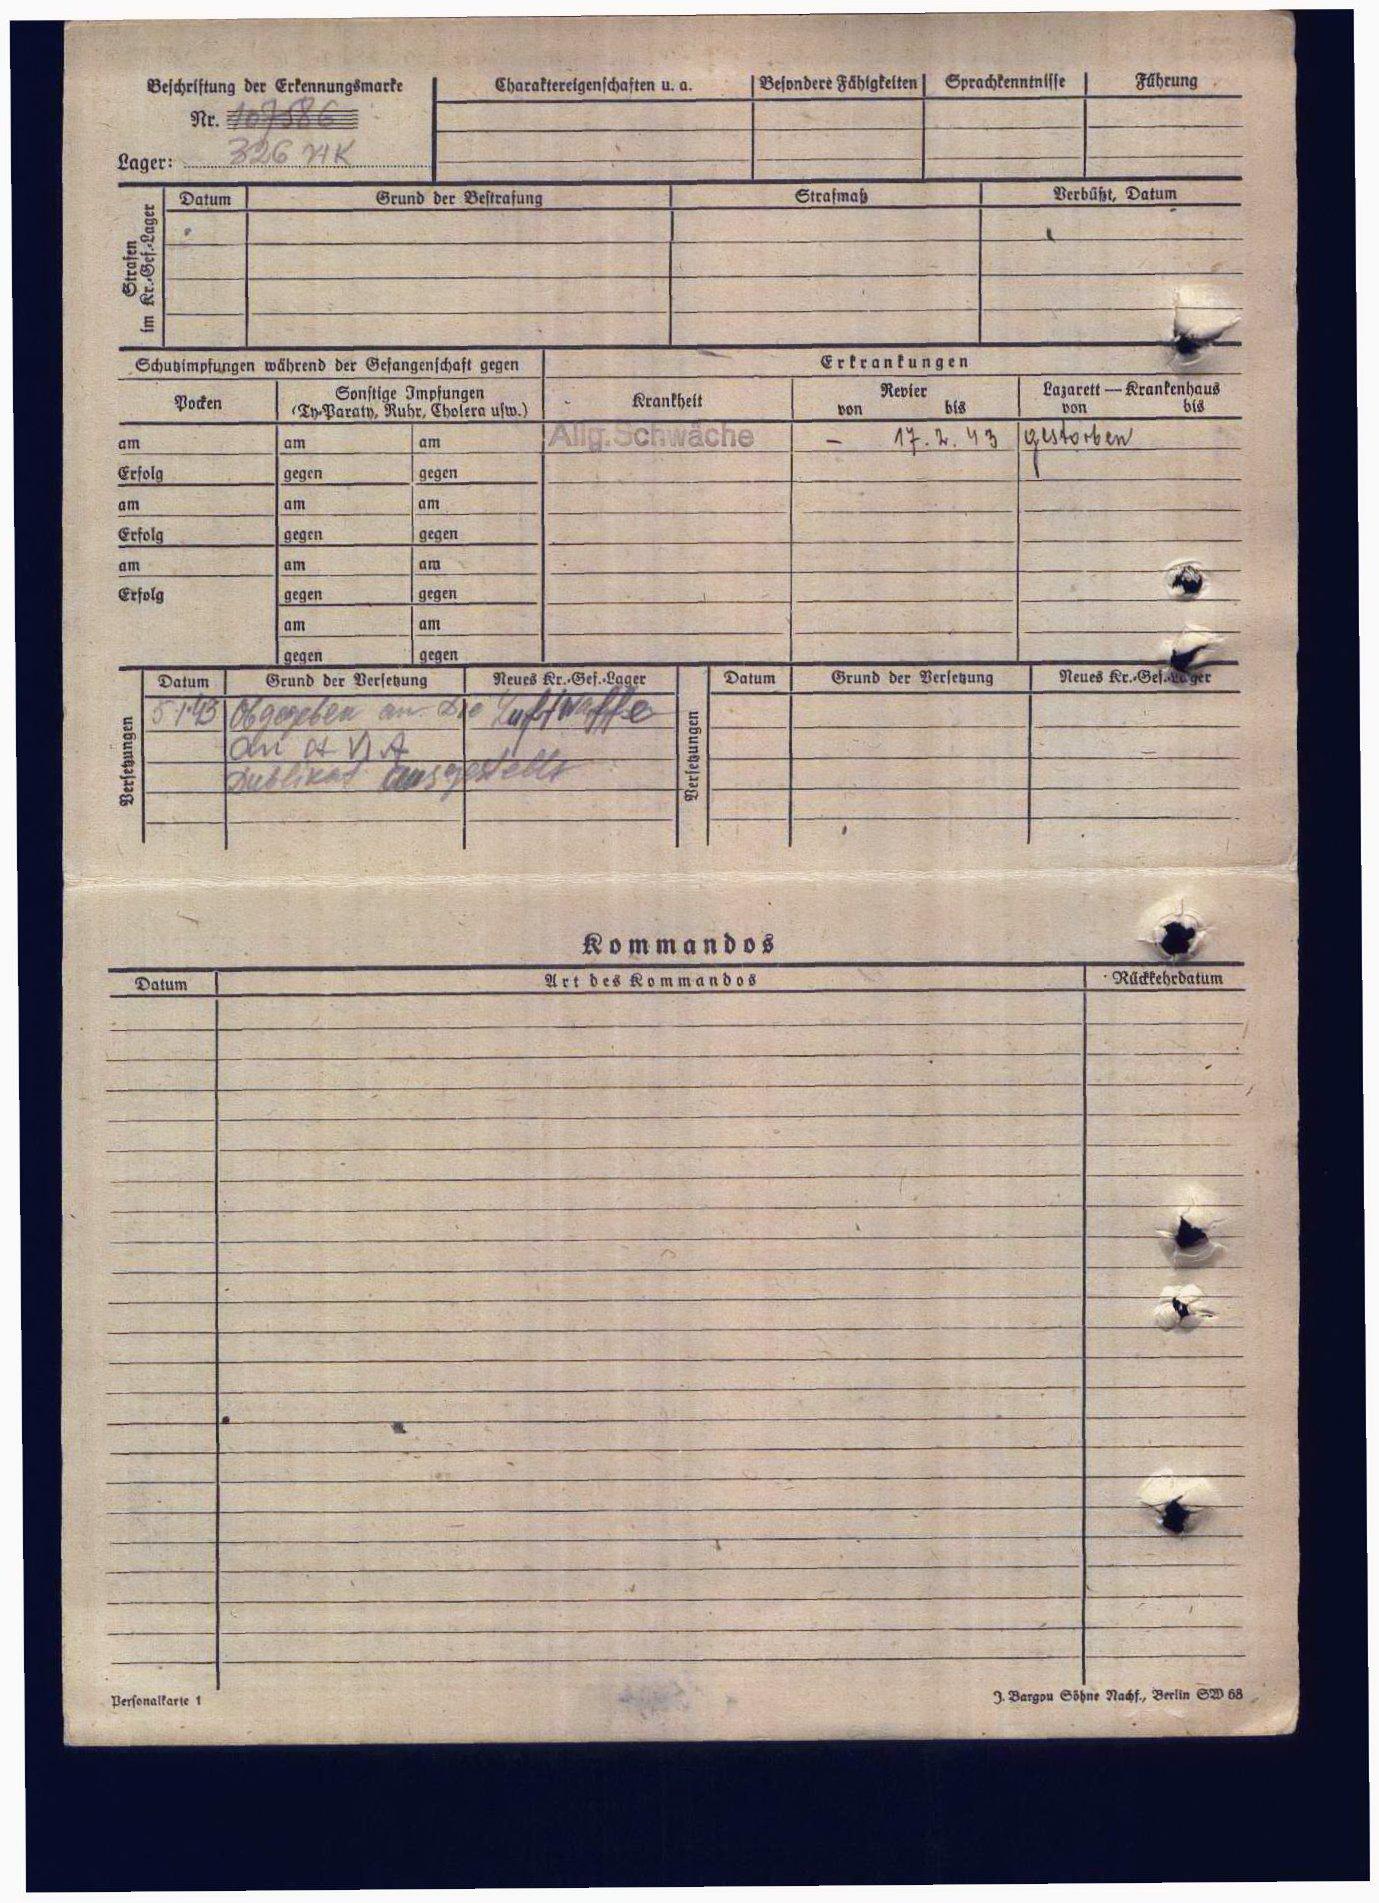 Beschriftung der Erkennungsmarke
Nr. 107586
Lager: 326 VI K
Charaktereigenschaften u. a. Besondere Fähigkeiten Sprachkenntnisse Führung
Strafen im Kr.-Gef.-Lager
Datum Grund der Bestrafung Strafmaß Verbüßt, Datum
Schutzimpfungen während der Gefangenschaft gegen Erkrankungen
Pocken Sonstige Impfungen (Ty-Paraty, Ruhr, Cholera usw.) Krankheit Revier von bis Lazarett — Krankenhaus von bis
am am am Allg. Schwäche – 17.2.43 gestorben
Erfolg gegen gegen
am am am
Erfolg gegen gegen
am am am
Erfolg gegen gegen
am am
gegen gegen
Versetzungen
Datum Grund der Versetzung Neues Kr.-Gef.-Lager
5.1.43 Abgegeben an die Luftwaffe
Dublikat ausgestellt
Versetzungen
Datum Grund der Versetzung Neues Kr.-Gef.-Lager
Kommandos
Datum Art des Kommandos Rückkehrdatum
Personalkarte 1
J. Bargou Söhne Nachf., Berlin SW 68